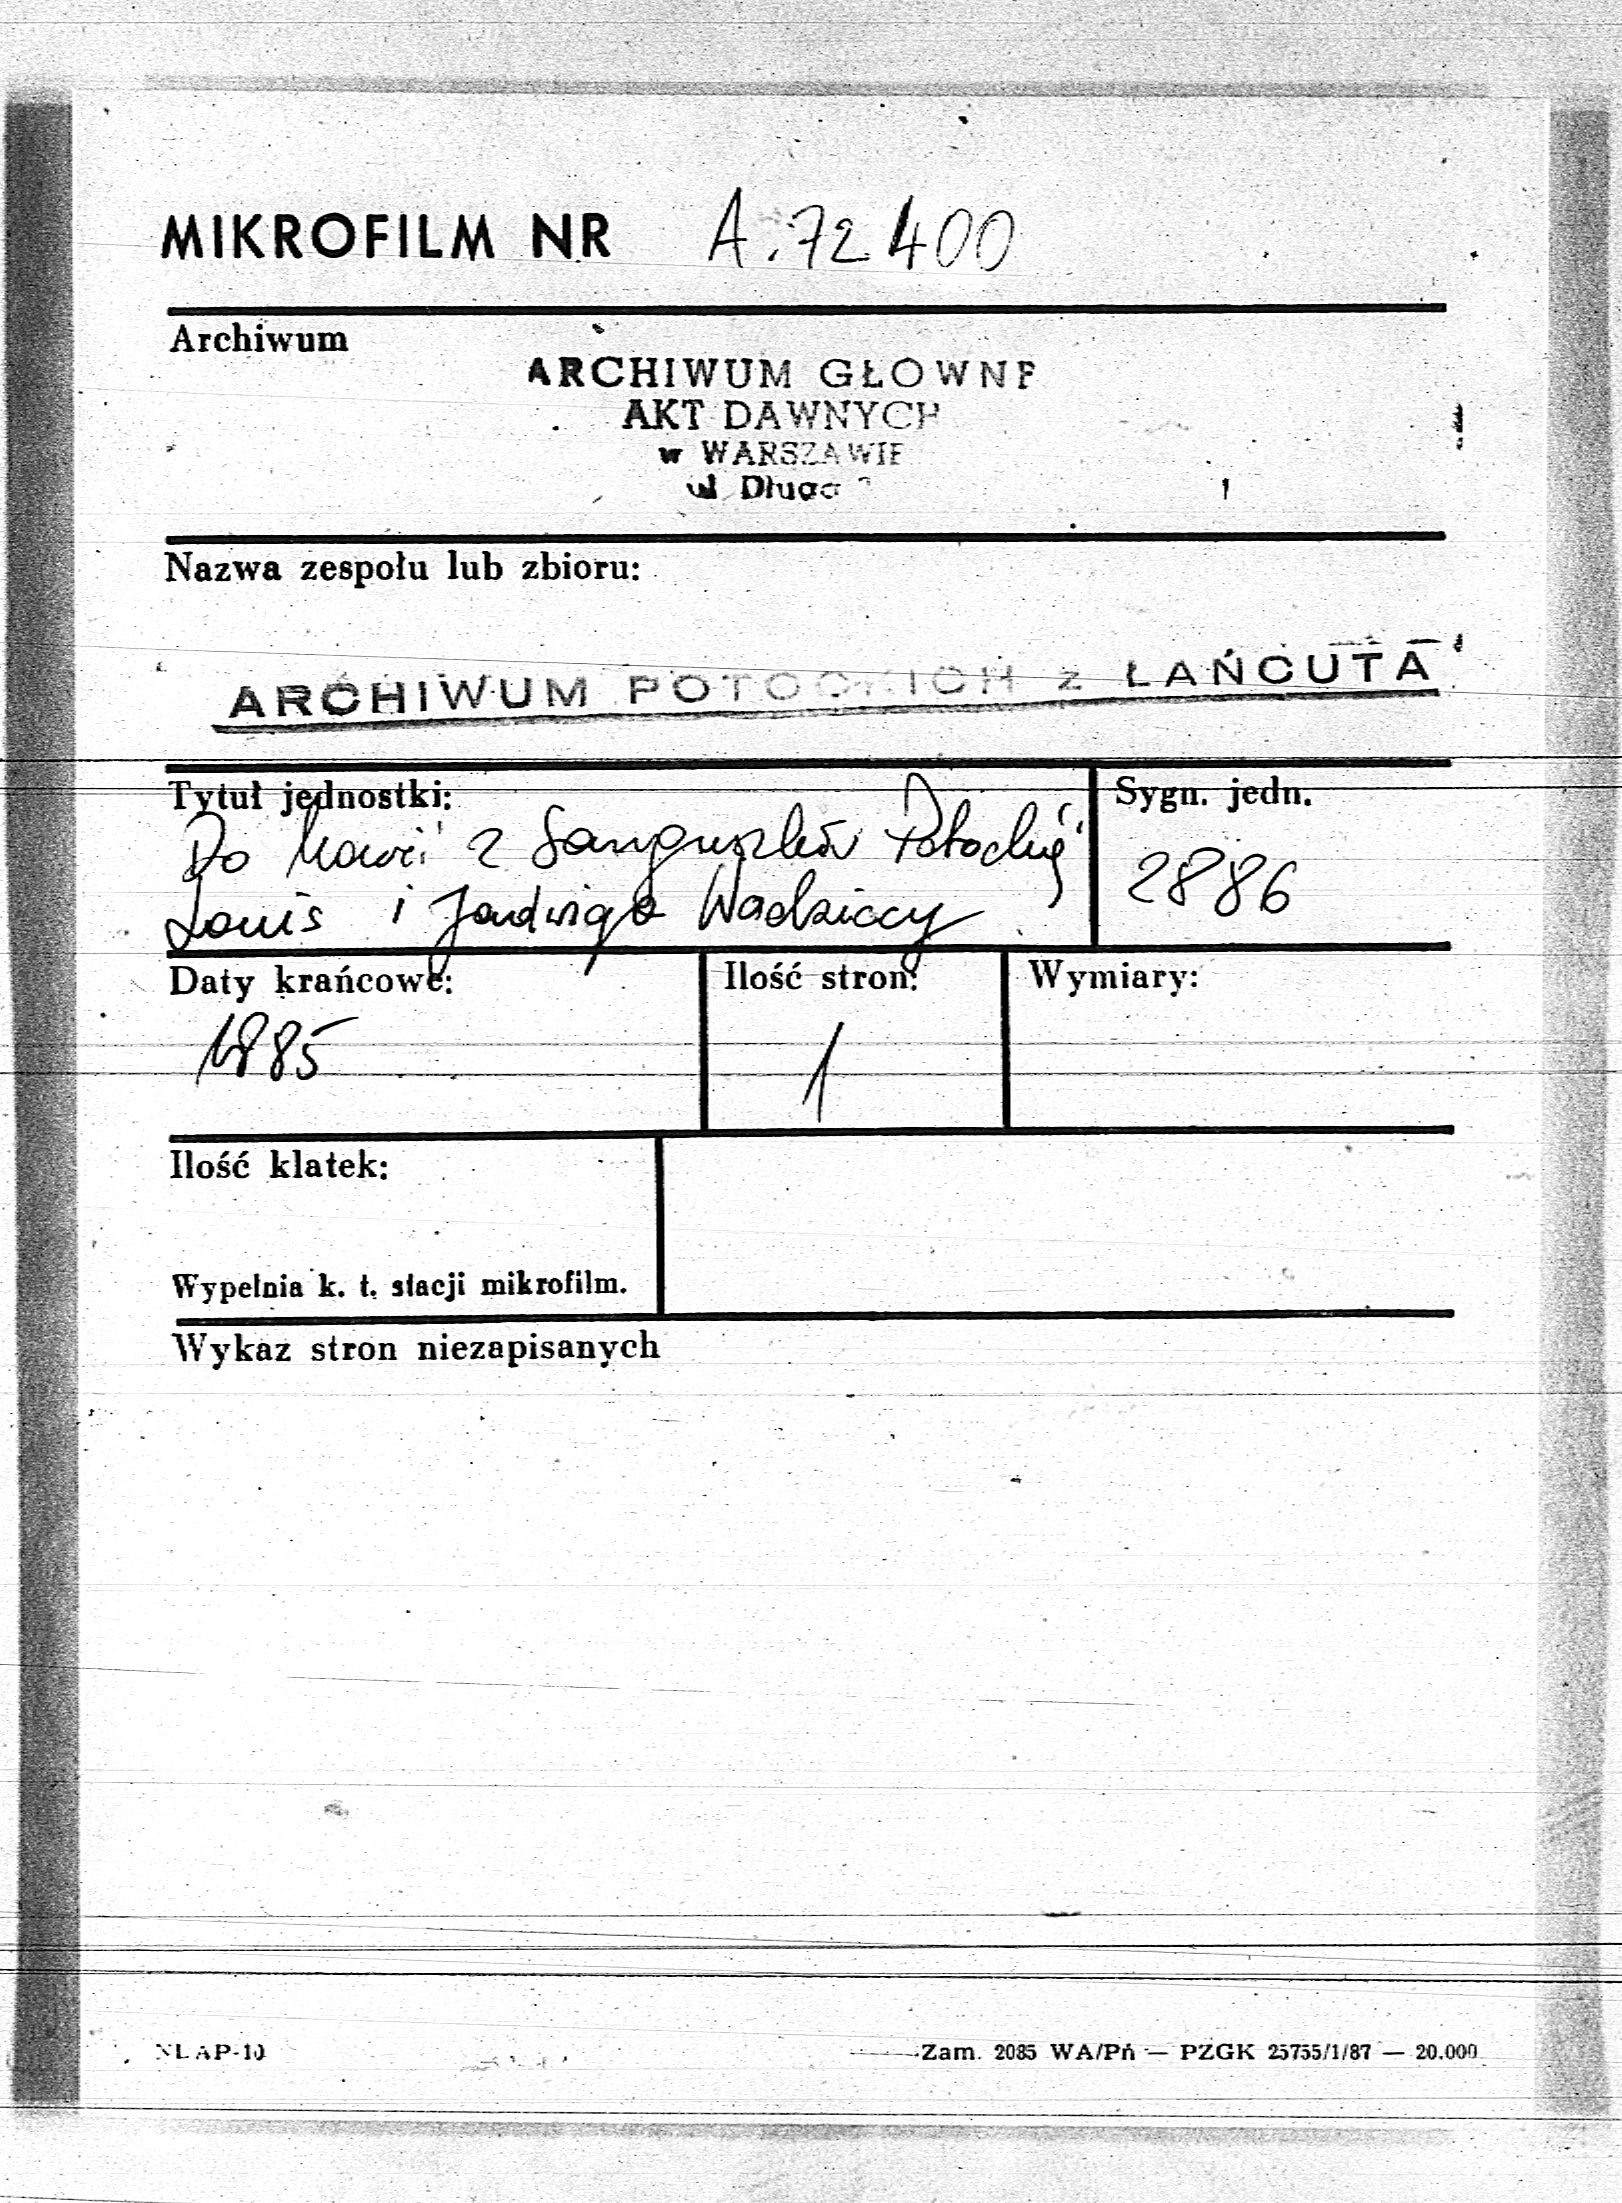 MIKROFILM NR A.72400
Archiwum
ARCHIWUM GŁOWNE
AKT DAWNYCH
w WARSZAWIE
ul Długa
Nazwa zespołu lub zbioru:
ARCHIWUM POTOCKICH z ŁAŃCUTA
Tytuł jednostki: Sygn. jedn.
Do Marii z Sanguszków Potockiej 2886
Louis i Jadwiga Wodziccy
Daty krańcowe: Ilość stron: Wymiary:
1885 1
Ilość klatek:
Wypełnia k. t. stacji mikrofilm.
Wykaz stron niezapisanych
NLAP-10 Zam. 2085 WA/Pń — PZGK 25755/1/87 — 20.000